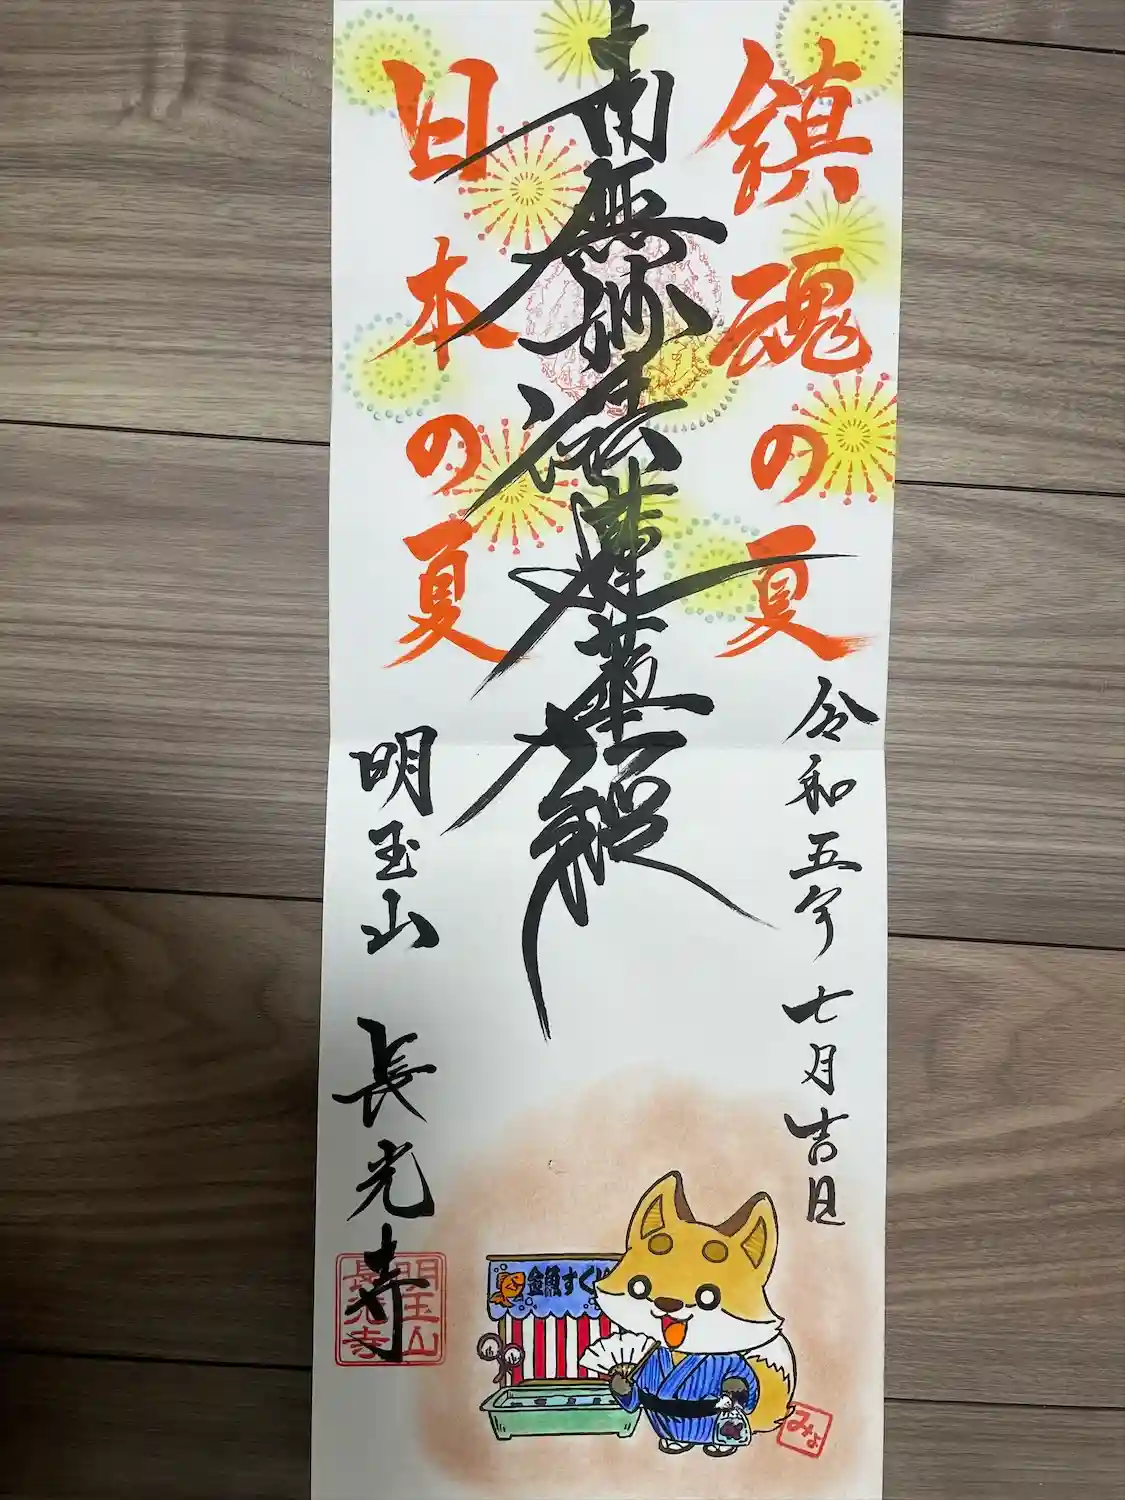 鎮魂の夏
令和五年七月吉日
南無妙法蓮華経
日本の夏
明玉山 長光寺
明玉山
長光寺
金魚すく
みよ